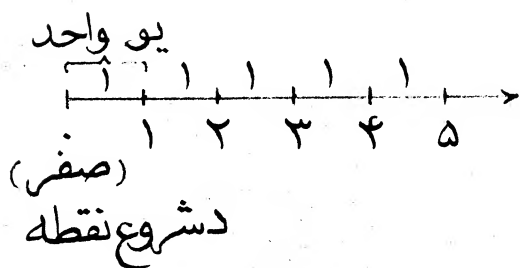 یو واحد
۱ ۱ ۱ ۱ ۱
۰ ۱ ۲ ۳ ۴ ۵
(صفر)
د شروع نقطه